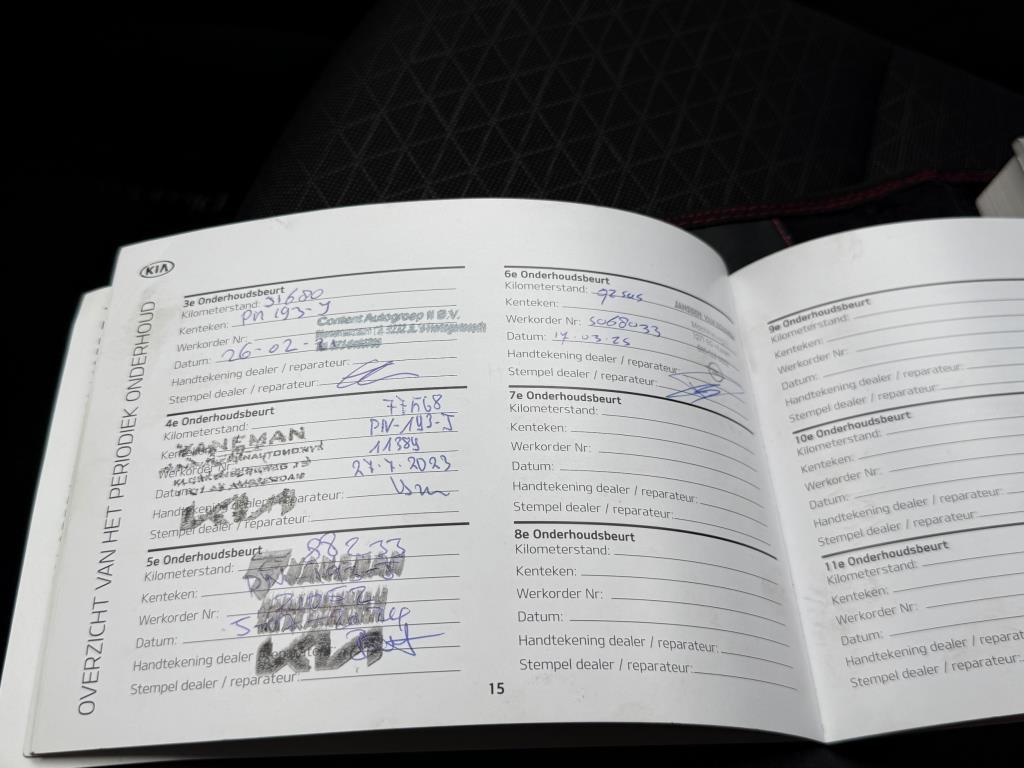 KIA
OVERZICHT VAN HET PERIODIEK ONDERHOUD
3e Onderhoudsbeurt
Kilometerstand: 51680
Kenteken: PN 193-J
Content Autogroep II B.V.
Werkorder Nr:
Datum: 26-02-
Handtekening dealer / reparateur:
Stempel dealer / reparateur:
4e Onderhoudsbeurt
Kilometerstand: 77568
Kenteken: PN-193-J
Werkorder Nr: 11389
Datum: 27.7.2023
Handtekening dealer / reparateur:
KIA
Stempel dealer / reparateur:
5e Onderhoudsbeurt
Kilometerstand: 88233
Kenteken:
Werkorder Nr:
Datum:
Handtekening dealer / reparateur:
KIA
Stempel dealer / reparateur:
6e Onderhoudsbeurt
Kilometerstand:
Kenteken:
Werkorder Nr: 5068033
Datum: 17.03.25
Handtekening dealer / reparateur:
Stempel dealer / reparateur:
7e Onderhoudsbeurt
Kilometerstand:
Kenteken:
Werkorder Nr:
Datum:
Handtekening dealer / reparateur:
Stempel dealer / reparateur:
8e Onderhoudsbeurt
Kilometerstand:
Kenteken:
Werkorder Nr:
Datum:
Handtekening dealer / reparateur:
Stempel dealer / reparateur:
15
9e Onderhoudsbeurt
Kilometerstand:
Kenteken:
Werkorder Nr:
Datum:
Handtekening dealer / reparateur:
Stempel dealer / reparateur:
10e Onderhoudsbeurt
Kilometerstand:
Kenteken:
Werkorder Nr:
Datum:
Handtekening dealer / reparateur:
Stempel dealer / reparateur:
11e Onderhoudsbeurt
Kilometerstand:
Kenteken:
Werkorder Nr:
Datum:
Handtekening dealer / reparateur:
Stempel dealer / reparateur: